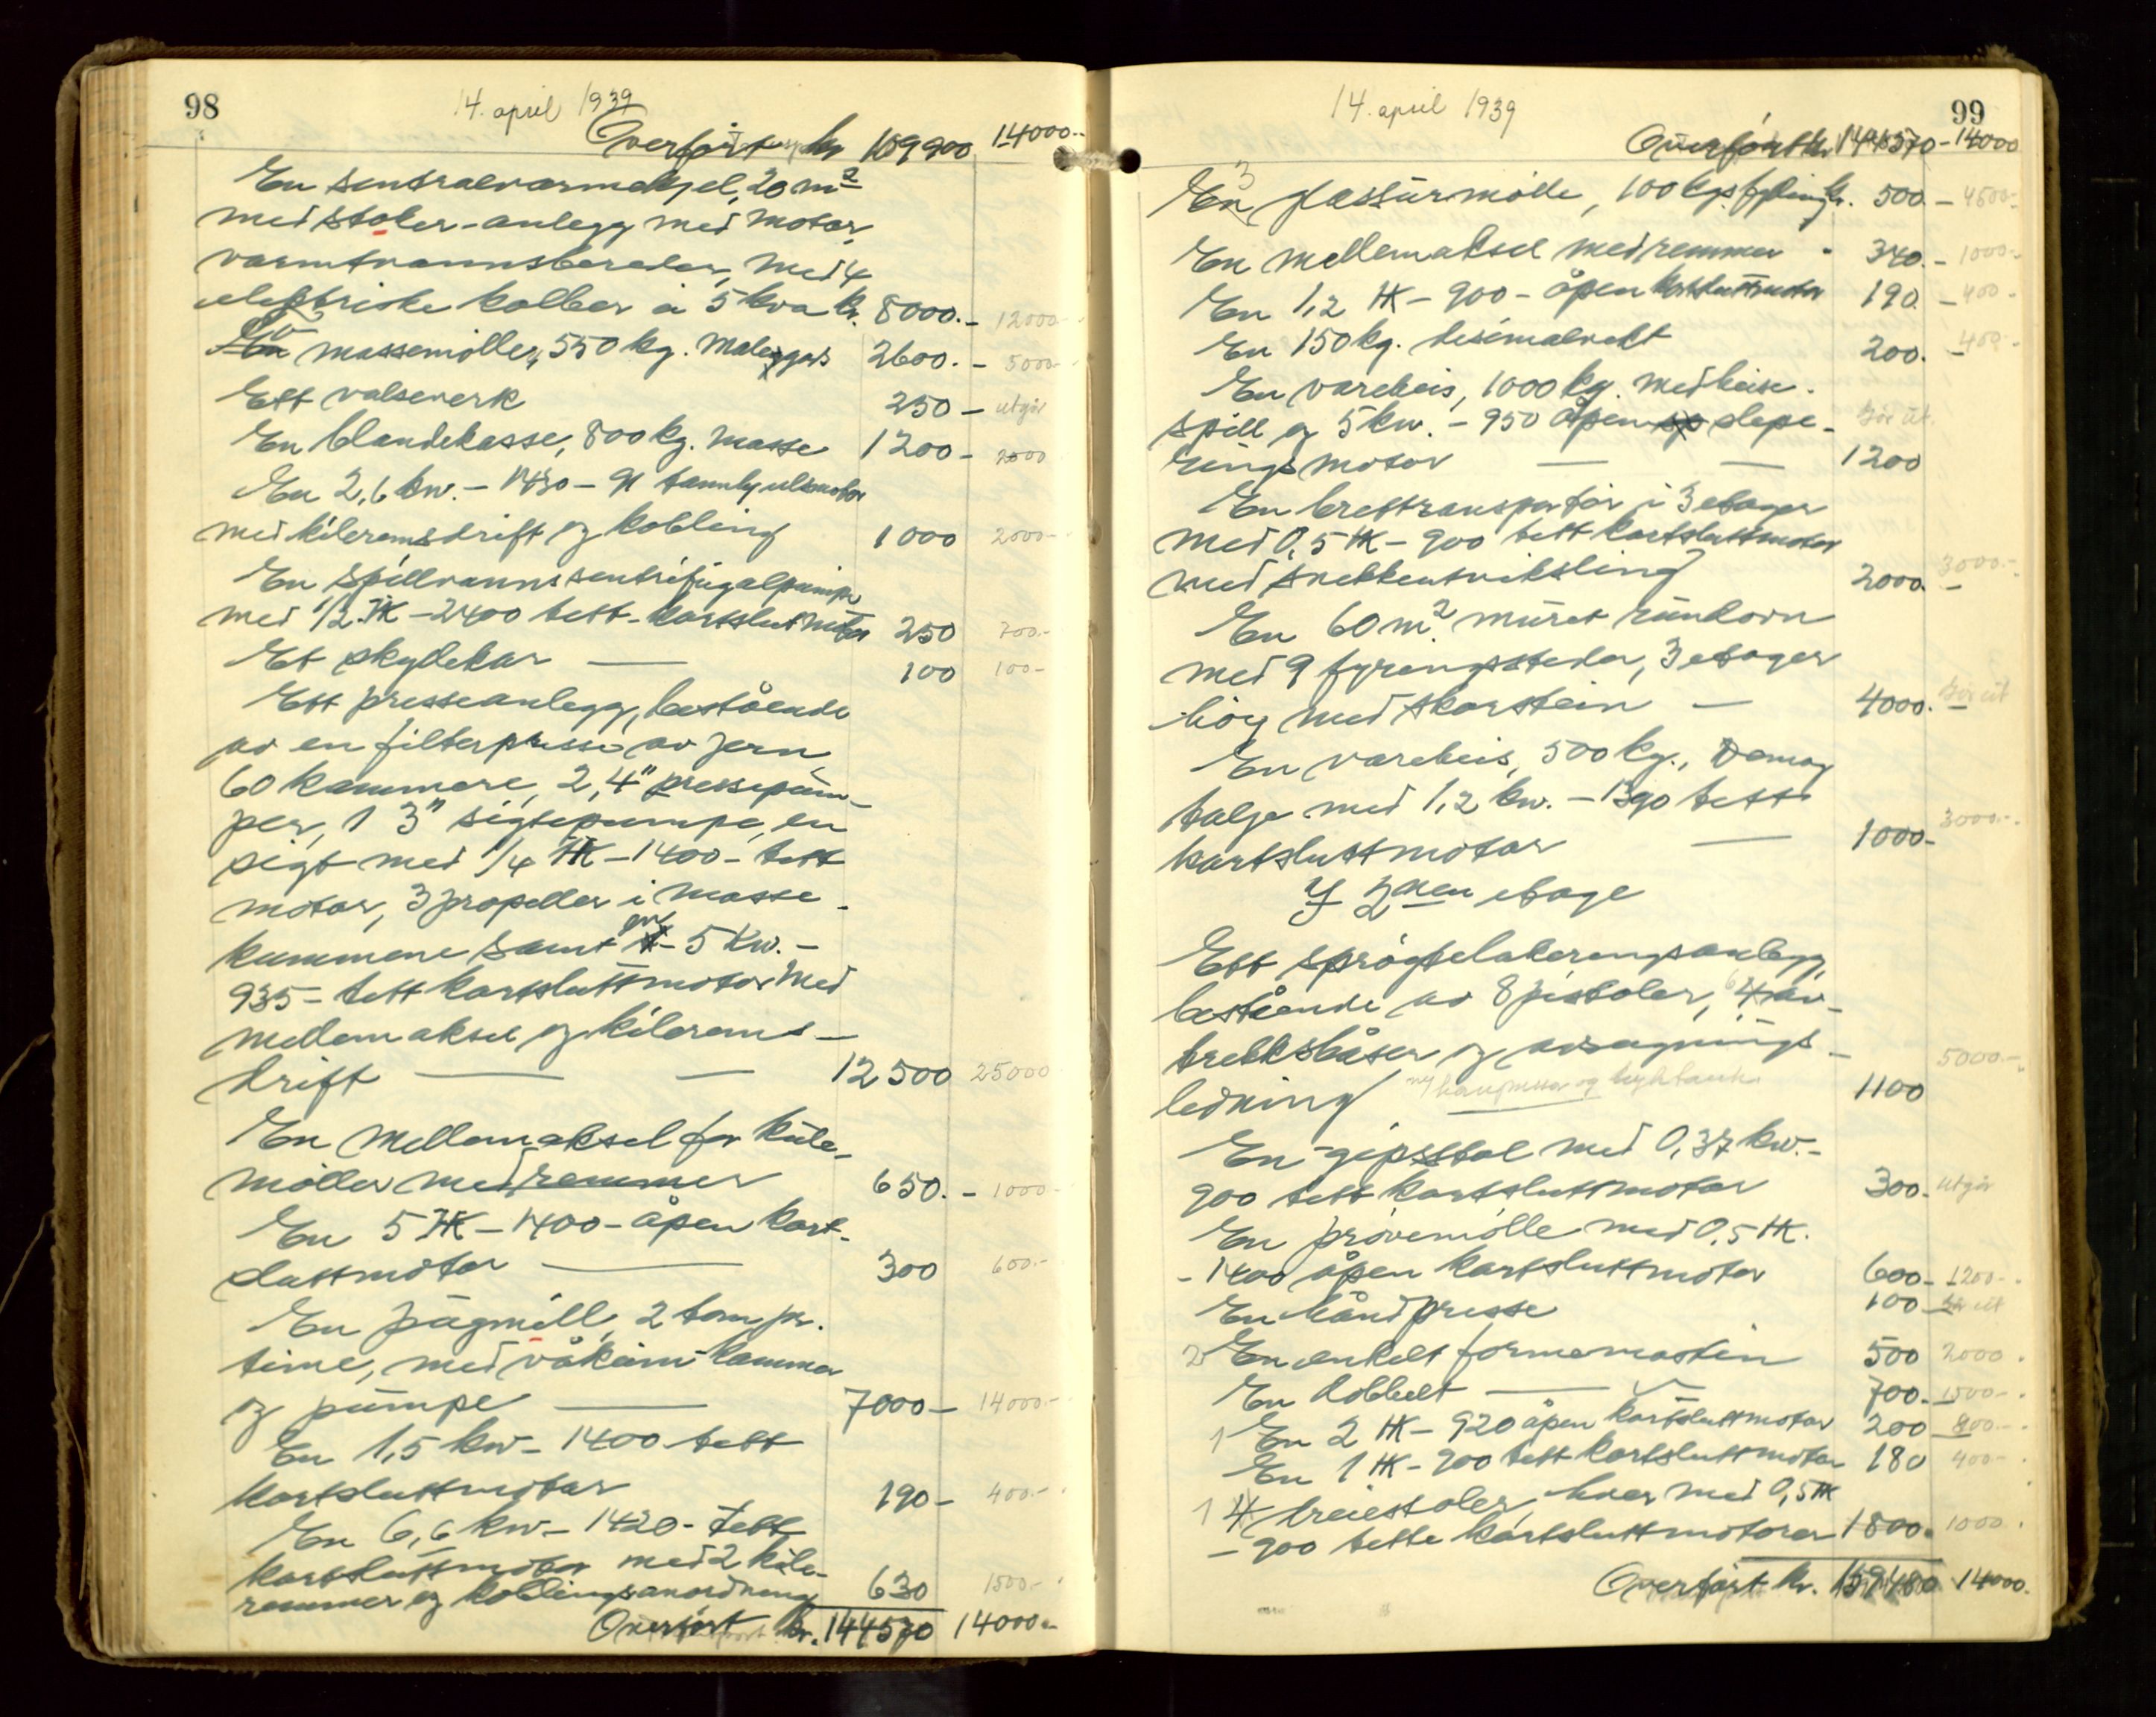 98
14. april 1939
Overført kr 109900 14000.-
En sentralvarmekjel, 20 m²
med stoker-anlegg med motor,
varmtvannsbereder, med 4
elektriske kolber à 5 kva kr. 8000.- 12000
To massemøller, 550 kg. malegods 2600.- 5000.-
Ett valseverk 250 - utgår
En blandekasse, 800 kg. masse 1200 - 2000
En 2,6 kw. - 1430 - tannhjulsmotor
med kileremsdrift og kobling 1000 2000.-
En spillvannssentrifugalpumpe
med 1/2 HK - 2400 tett kortslutmotor 250 700.-
Et skyllekar — 100 100-
Ett presseanlegg, bestående
av en filterpresse av jern,
60 kammere, 2, 4" pressepum-
per, 1 3" sigtepumpe, en
sigt med 1/4 HK - 1400 - tett
motor, 3 propeller i masse-
kummene samt - 5 Kw. -
935 - tett kortsluttmotor med
mellemaksel og kilerems-
drift — — 12500 25000
En mellemaksel for kule-
møller med remmer 650.- 1000
En 5 HK - 1400 - åpen kort-
sluttmotor — 300 600.-
En pugmill, 2 tonn pr.
time, med våkum kammer
og pumpe — 7000 - 14000.-
En 1,5 kw - 1400 tett
kortsluttmotor 190 - 400.-
En 6,6 kw - 1420 - tett
kortsluttmotor med 2 kile-
remmer og koblingsanordning 630 1500.-
Overført kr. 144570 14000.-
99
14. april 1939
Overført kr 144570 - 14000
3
En glassurmølle, 100 kgs fylling kr. 500.- 4500.-
En mellemaksel med remmer " 340.- 1000.-
En 1,2 HK - 900 - åpen kortsluttmotor 190. - 400.-
En 150 kg. desimalvekt 200. - 400.-
En vareheis, 1000 kg. med heise-
spill og 5 kw. - 950 åpen slepe- går ut.
ringsmotor — — 1200
En brettransportør i 3 etager
med 0,5 HK - 900 tett kortsluttmotor
med snekkeutveksling 2000.- 3000.-
En 60 m² muret rundovn
med 9 fyringssteder, 3 etager
høy med skorstein — 4000.- går ut
En vareheis, 500 kg., Demag
talje med 1,2 kw. - 1390 tett
kortsluttmotor — 1000- 3000.-
I 2nen etage
Ett sprøyte lakeringsanlegg,
bestående av 8 pistoler, 4 av-
trekksbåser og avsugnings-
ledning 1100 5000.-
ny kompressor og lufttank
En gipsstol med 0,37 kw. -
900 tett kortsluttmotor 300.- utgår
En prøvemølle med 0,5 HK.
- 1400 åpen kortsluttmotor 600 - 1200.-
En håndpresse 100 - går ut
2 En enkelt formemaskin 500 2000.
En dobbelt — 700.- 1500.-
1 En 2 HK - 920 åpen kortsluttmotor 200 800.-
En 1 HK - 900 tett kortsluttmotor 180 400.-
1 4 dreiestoler, hver med 0,5 HK
- 900 tette kortsluttmotorer 1800.- 1000.
Overført kr. 159480 14000.